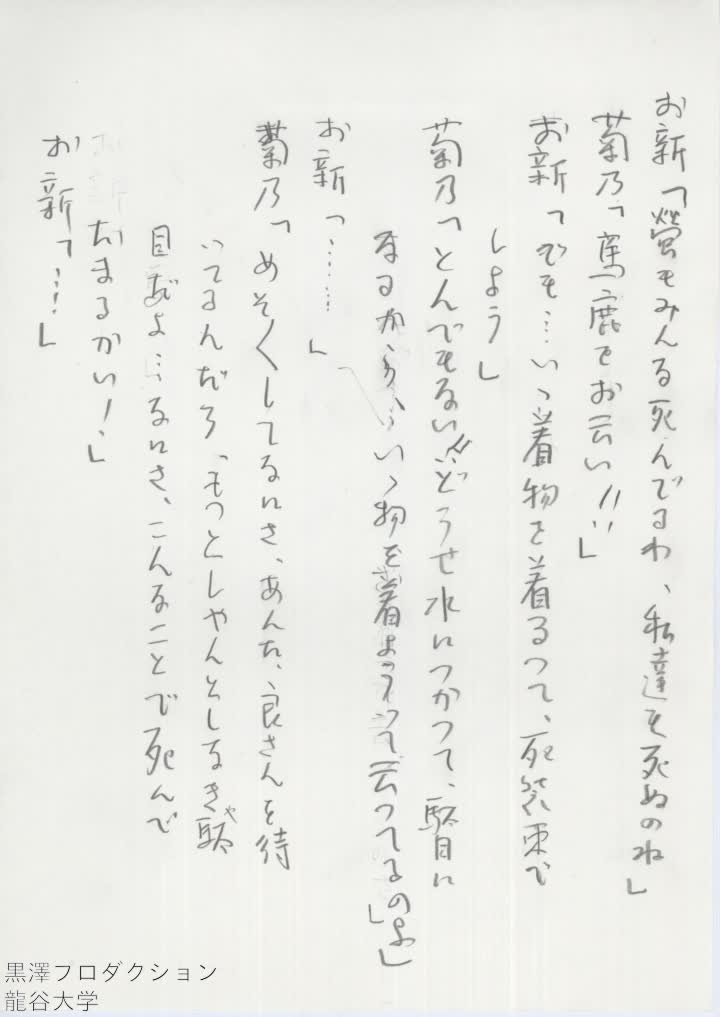 お新「螢もみんな死んでるわ、私達も死ぬのね」
菊乃「馬鹿をお云い!!」
お新「でも…いゝ着物を着るって、死装束で
しよう」
菊乃「とんでもない!!どうせ水につかつて、駄目に
なるから、いゝ物を着ようって云つてるのよ」
お新「……」
菊乃「めそ〱してなにさ、あんた、良さんを待
いてるんだろ、もつとしやんとしなきや駄
目だよ…なにさ、こんなことで死んで
たまるかい!」
お新「…」
黒澤プロダクション
龍谷大学